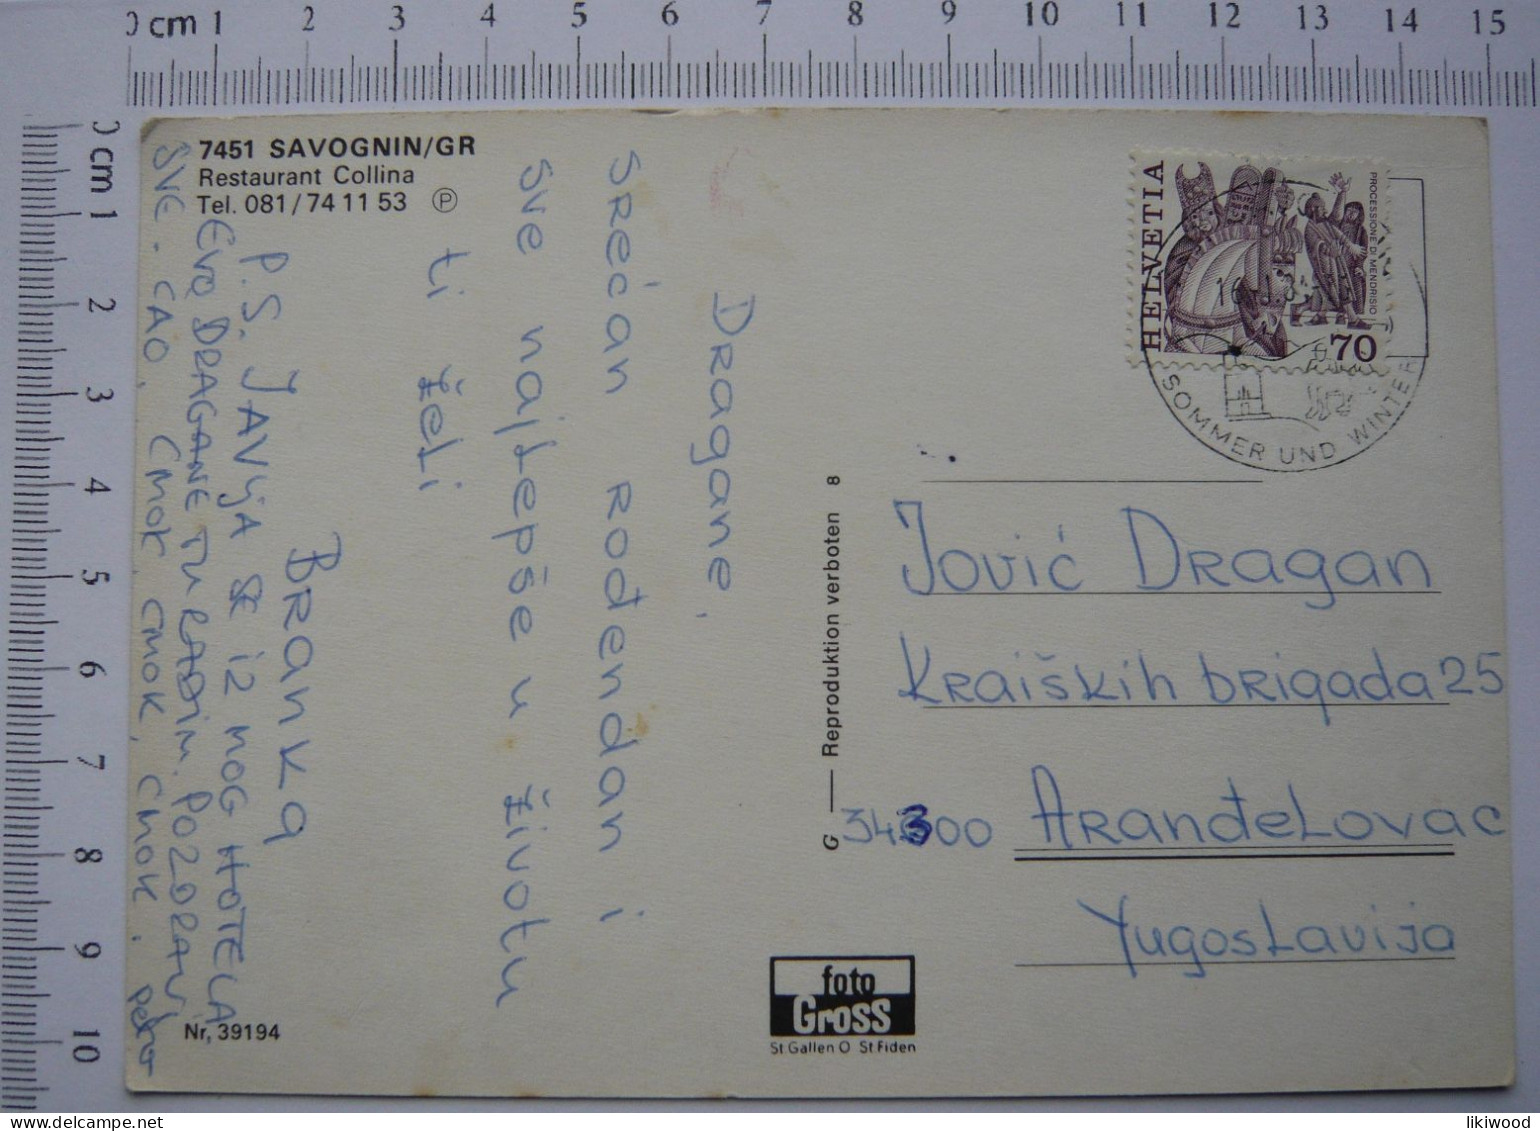 0 cm 1 2 3 4 5 6 7 8 9 10 11 12 13 14 15
0 cm 1 2 3 4 5 6 7 8 9 10
7451 SAVOGNIN/GR
Restaurant Collina
Tel. 081/74 11 53 Ⓟ
Dragane,
Srećan rođendan i
sve najlepše u životu
ti želi
Branka
P.S. JAVLJA SE IZ NOG HOTELA
EVO DRAGANE TU RADIM. POZDRAVI
SVE. CAO. CMOK. CMOK, CMOK.
Nr. 39194
G — Reproduktion verboten 8
foto
Gross
St.Gallen O St.Fiden
HELVETIA
PROCESSIONE DI MENDRISIO
70
SOMMER UND WINTER
Jović Dragan
Kraiških brigada 25
34300 Aranđelovac
Yugoslavija
likiwood